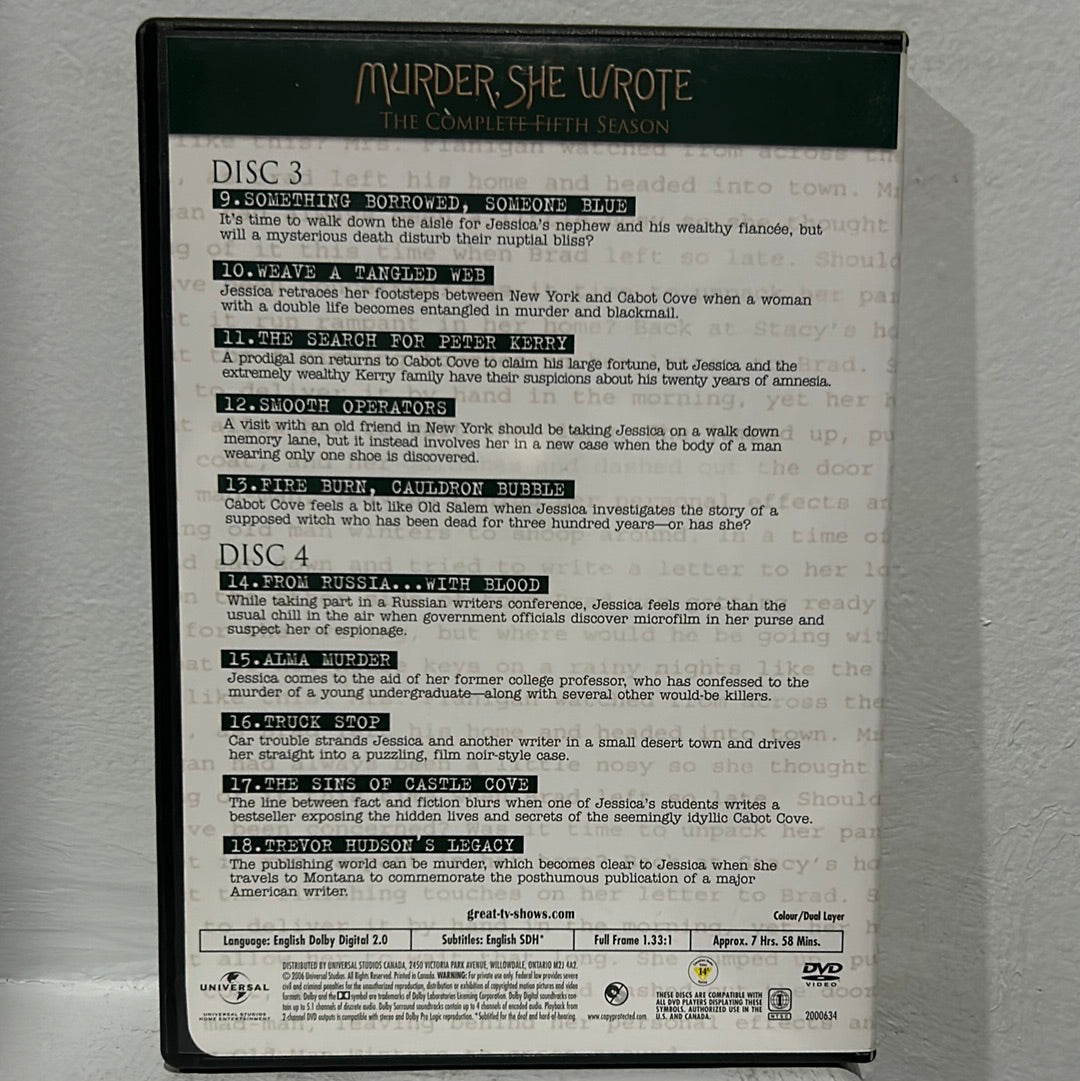 MURDER, SHE WROTE
THE COMPLETE FIFTH SEASON
DISC 3
9.SOMETHING BORROWED, SOMEONE BLUE
It's time to walk down the aisle for Jessica's nephew and his wealthy fiancée, but
will a mysterious death disturb their nuptial bliss?
10.WEAVE A TANGLED WEB
Jessica retraces her footsteps between New York and Cabot Cove when a woman
with a double life becomes entangled in murder and blackmail.
11.THE SEARCH FOR PETER KERRY
A prodigal son returns to Cabot Cove to claim his large fortune, but Jessica and the
extremely wealthy Kerry family have their suspicions about his twenty years of amnesia.
12.SMOOTH OPERATORS
A visit with an old friend in New York should be taking Jessica on a walk down
memory lane, but it instead involves her in a new case when the body of a man
wearing only one shoe is discovered.
13.FIRE BURN, CAULDRON BUBBLE
Cabot Cove feels a bit like Old Salem when Jessica investigates the story of a
supposed witch who has been dead for three hundred years—or has she?
DISC 4
14.FROM RUSSIA...WITH BLOOD
While taking part in a Russian writers conference, Jessica feels more than the
usual chill in the air when government officials discover microfilm in her purse and
suspect her of espionage.
15.ALMA MURDER
Jessica comes to the aid of her former college professor, who has confessed to the
murder of a young undergraduate—along with several other would-be killers.
16.TRUCK STOP
Car trouble strands Jessica and another writer in a small desert town and drives
her straight into a puzzling, film noir-style case.
17.THE SINS OF CASTLE COVE
The line between fact and fiction blurs when one of Jessica's students writes a
bestseller exposing the hidden lives and secrets of the seemingly idyllic Cabot Cove.
18.TREVOR HUDSON'S LEGACY
The publishing world can be murder, which becomes clear to Jessica when she
travels to Montana to commemorate the posthumous publication of a major
American writer.
great-tv-shows.com
Colour/Dual Layer
Language: English Dolby Digital 2.0 Subtitles: English SDH* Full Frame 1.33:1 Approx. 7 Hrs. 58 Mins.
UNIVERSAL
UNIVERSAL STUDIOS
HOME ENTERTAINMENT
DISTRIBUTED BY UNIVERSAL STUDIOS CANADA, 2450 VICTORIA PARK AVENUE, WILLOWDALE, ONTARIO M2J 4A2.
© 2006 Universal Studios. All Rights Reserved. Printed in Canada. WARNING: For private use only. Federal law provides severe
civil and criminal penalties for the unauthorized reproduction, distribution or exhibition of copyrighted motion pictures and video
formats. Dolby and the symbol are trademarks of Dolby Laboratories Licensing Corporation. Dolby Digital soundtracks con-
tain up to 5.1 channels of discrete audio. Dolby Surround soundtracks contain up to 4 channels of encoded audio. Playback from
2-channel DVD outputs is compatible with stereo and Dolby Pro Logic reproduction. *Subtitled for the deaf and hard-of-hearing.
www.copyprotected.com
14
THESE DISCS ARE COMPATIBLE WITH
ALL DVD PLAYERS DISPLAYING THESE
SYMBOLS. AUTHORIZED USE IN THE
U.S. AND CANADA.
1
NTSC
DVD
VIDEO
2000634